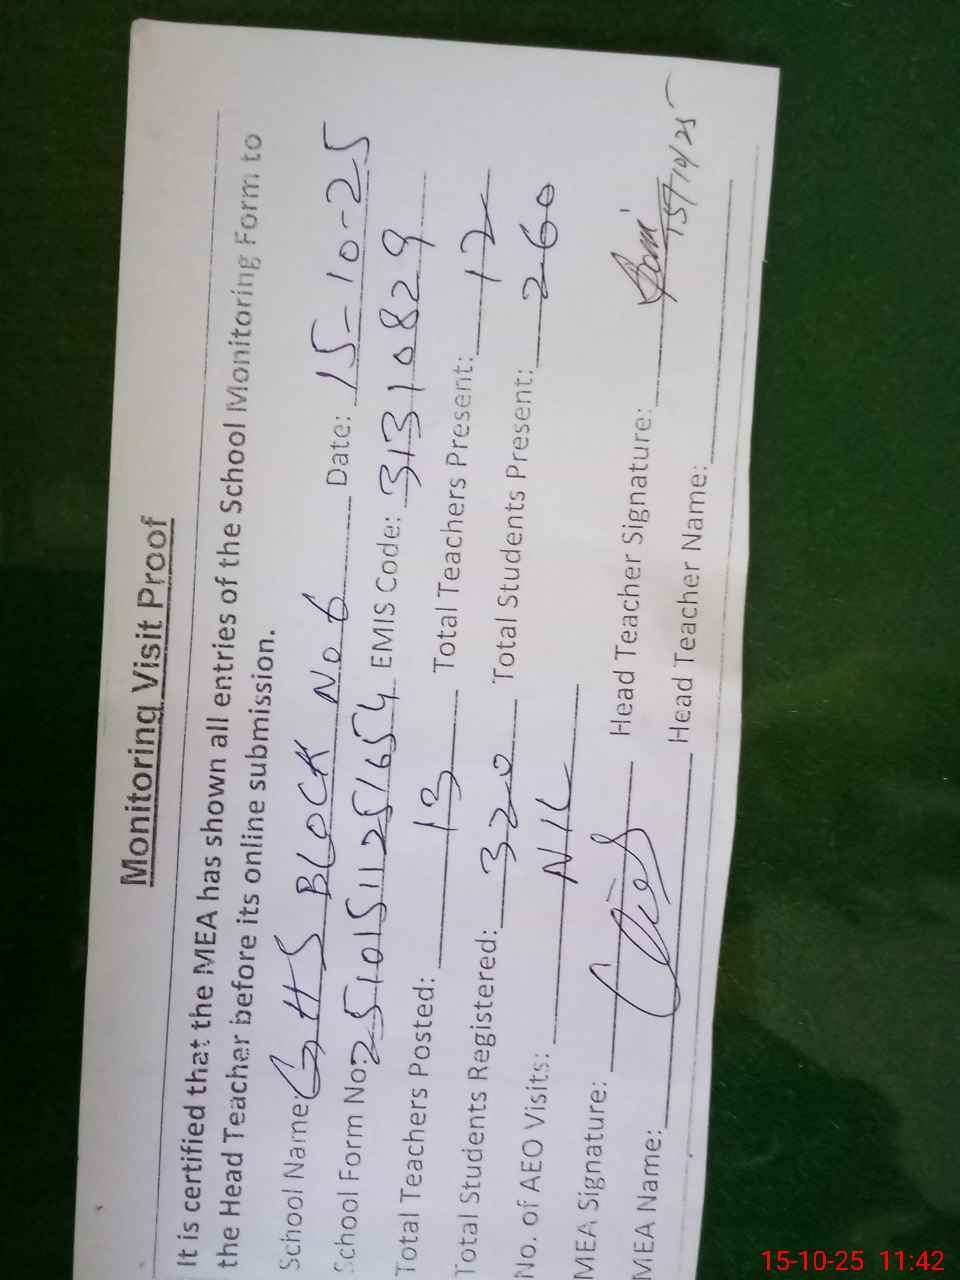 Monitoring Visit Proof
It is certified that the MEA has shown all entries of the School Monitoring Form to
the Head Teacher before its online submission.
School Name: GHS BLOCK No 6 Date: 15-10-25
School Form No: 25101511251654 EMIS Code: 31310829
Total Teachers Posted: 13 Total Teachers Present: 12
Total Students Registered: 320 Total Students Present: 260
No. of AEO Visits: NIL
MEA Signature: Head Teacher Signature: 15/10/25
MEA Name: Head Teacher Name:
15-10-25 11:42